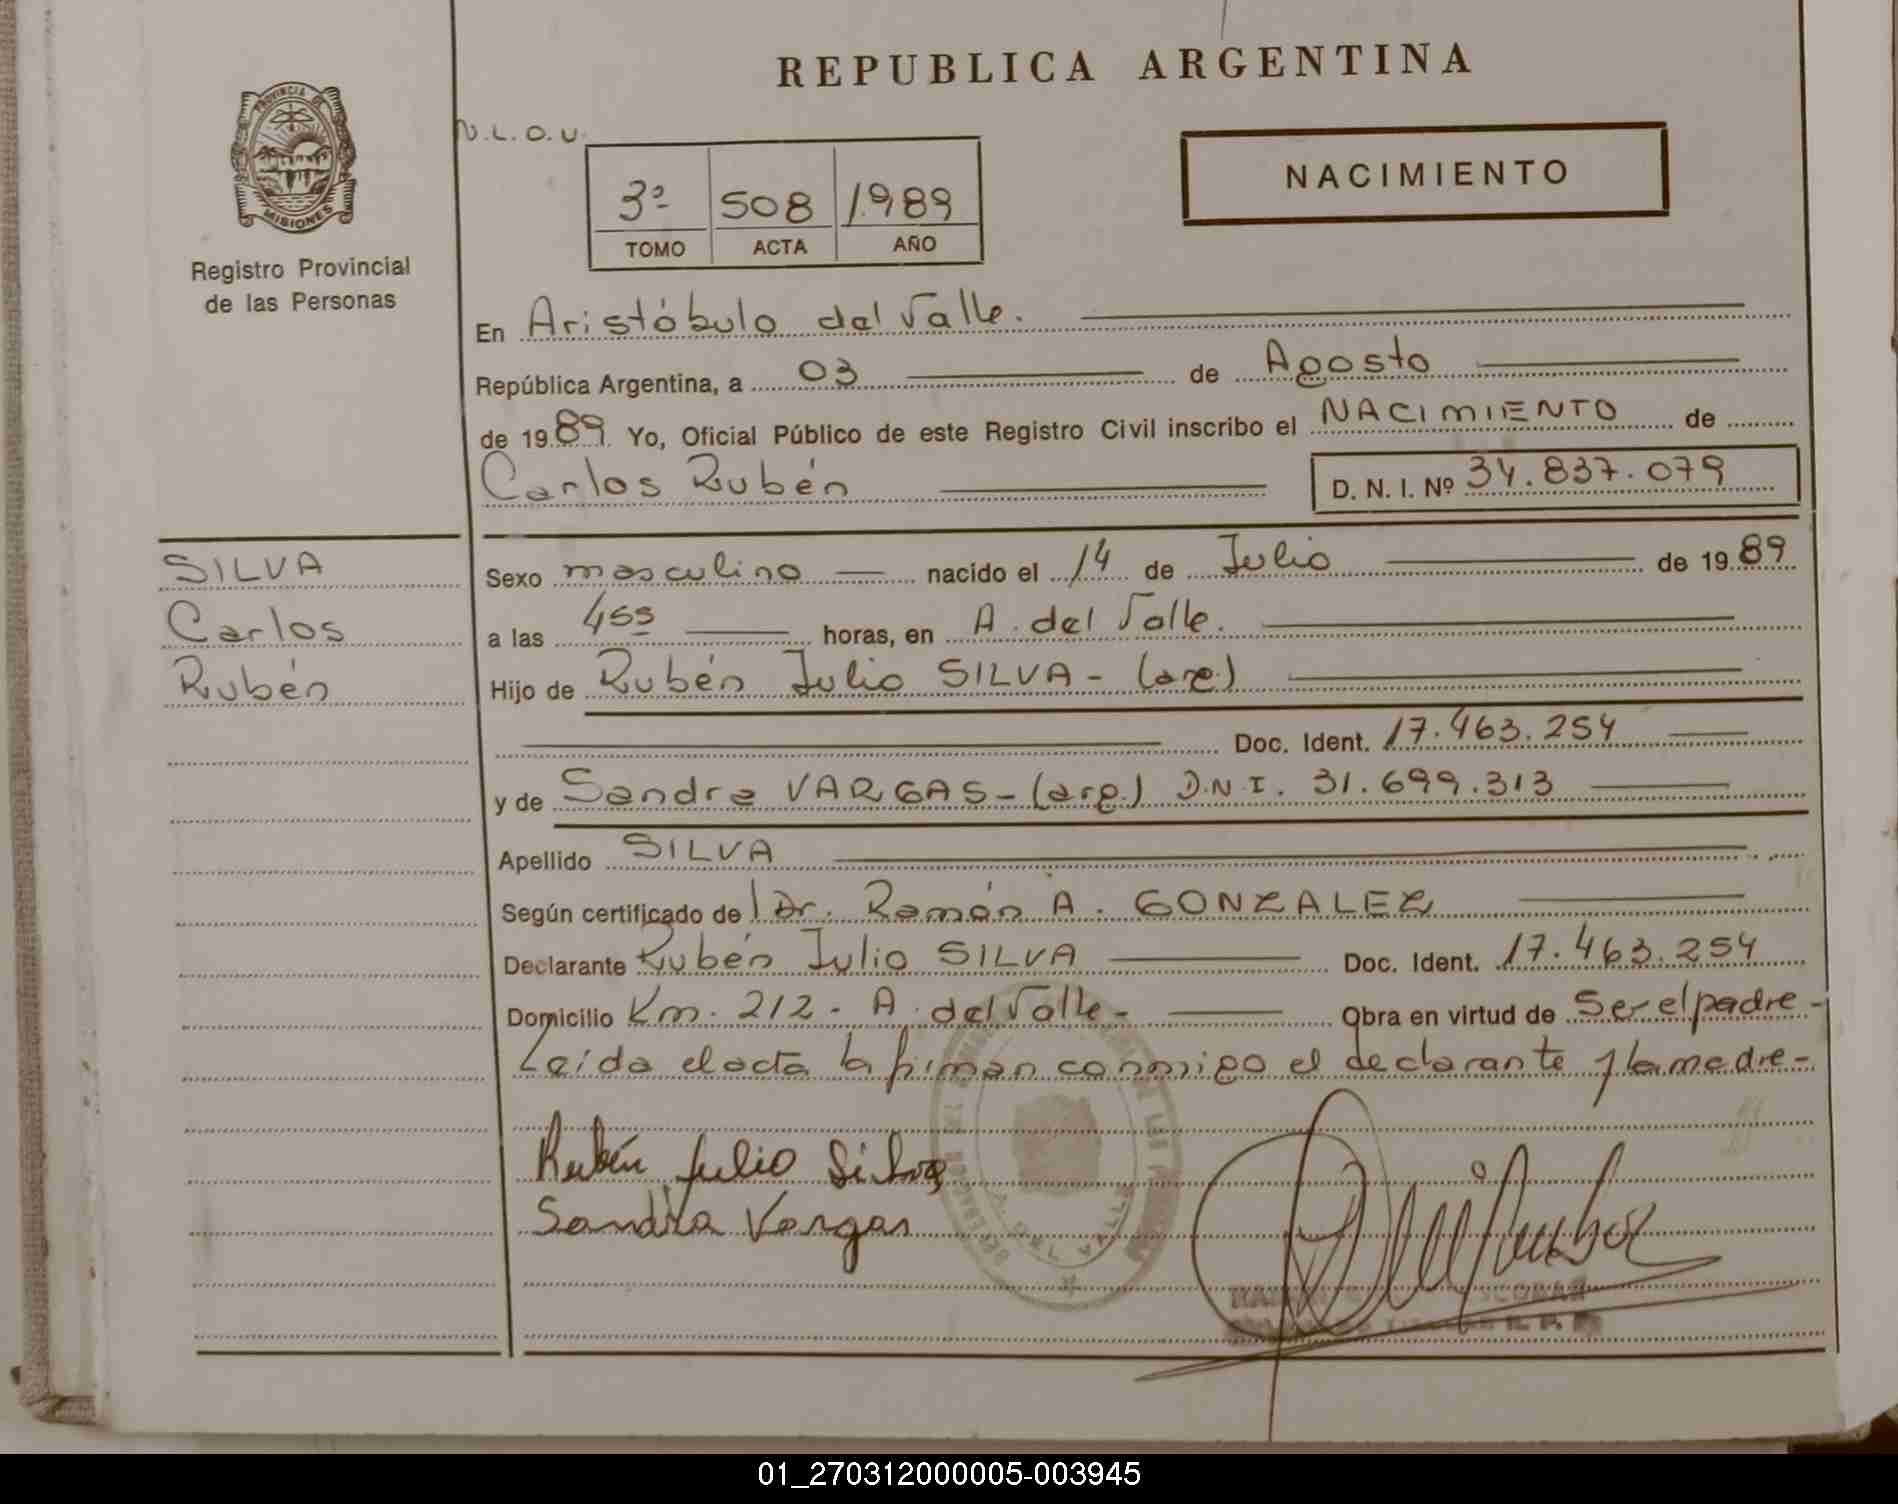 REPUBLICA ARGENTINA
PROVINCIA DE
MISIONES
Registro Provincial
de las Personas
N.L.O.U.
3º 508 1989
TOMO ACTA AÑO
NACIMIENTO
En Aristóbulo del Valle.
República Argentina, a 03 de Agosto
de 1989. Yo, Oficial Público de este Registro Civil inscribo el NACIMIENTO de
Carlos Rubén D. N. I. Nº 34.837.079
SILVA
Carlos
Rubén
Sexo masculino nacido el 14 de Julio de 1989
a las 455 horas, en A. del Valle.
Hijo de Rubén Julio SILVA - (arg.)
Doc. Ident. 17.463.254
y de Sandra VARGAS - (arg.) D.N.I. 31.699.313
Apellido SILVA
Según certificado de Dr. Ramón A. GONZALEZ
Declarante Rubén Julio SILVA Doc. Ident. 17.463.254
Domicilio Km. 212 - A. del Valle - Obra en virtud de ser el padre -
Leída el acta la firman conmigo el declarante y la madre -
Rubén Julio Silva
Sandra Vargas
01_270312000005-003945